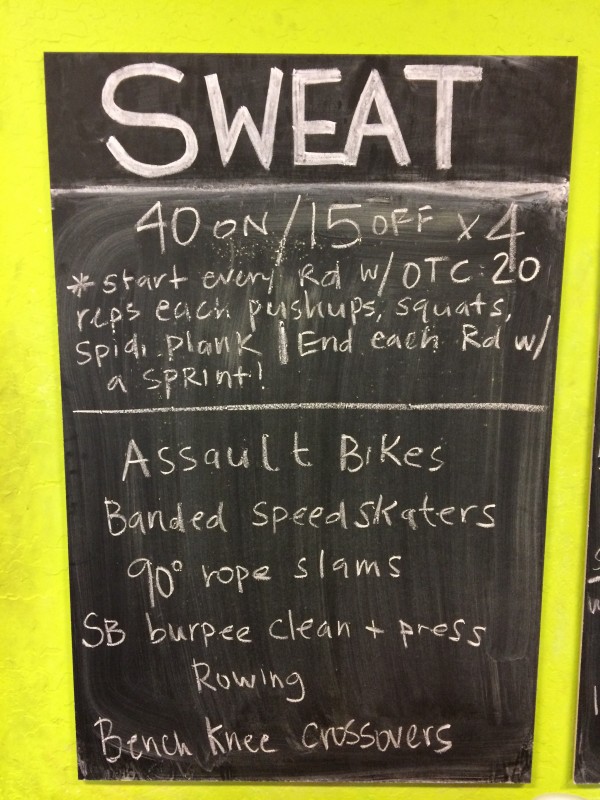 SWEAT
40 ON / 15 OFF x 4
* start every Rd w/ OTC: 20
reps each pushups, squats,
spidi plank | End each Rd w/
a SPRINT!
Assault Bikes
Banded speed skaters
90° rope slams
SB burpee clean + press
Rowing
Bench Knee crossovers